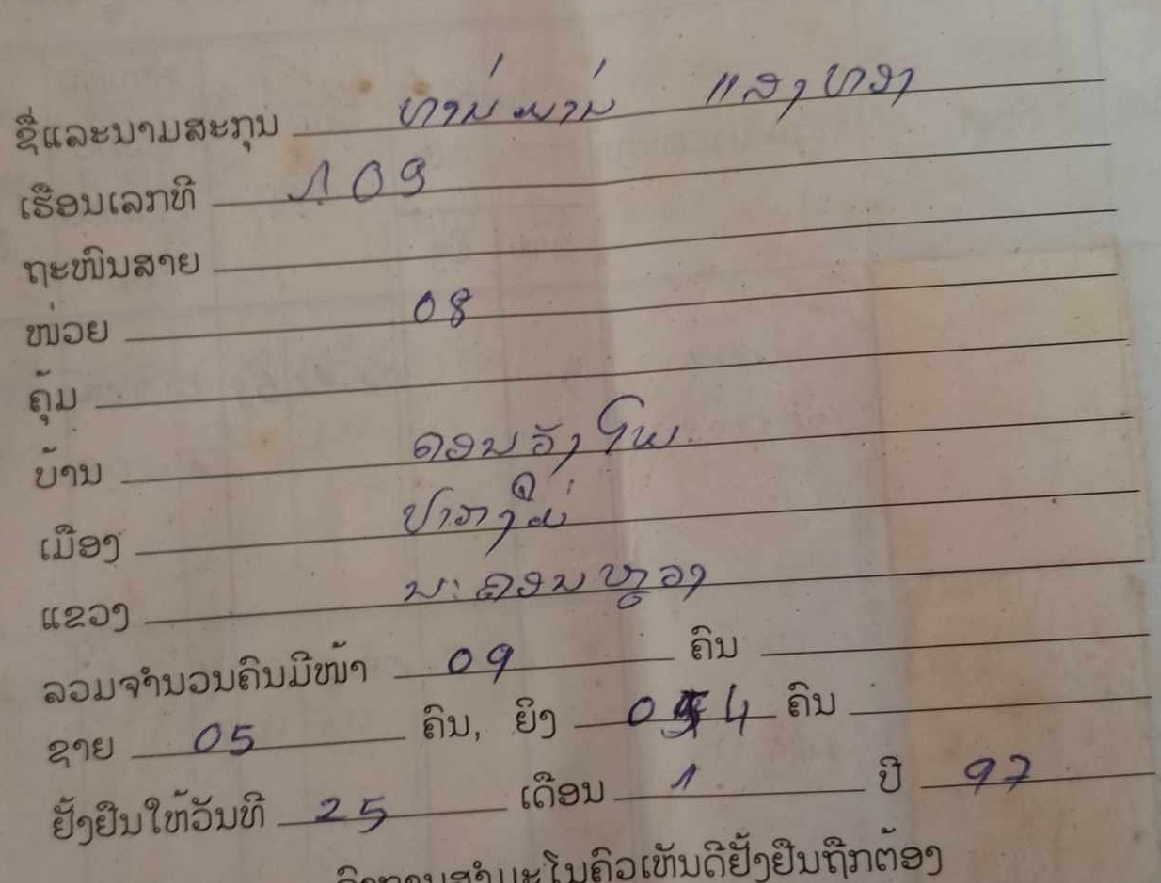 ຊື່ແລະນາມສະກຸນ ທ່ານ ພານ ແສງທອງ
ເຮືອນເລກທີ 109
ຖະໜົນສາຍ
ໜ່ວຍ 08
ຄຸ້ມ
ບ້ານ ດອນວັງໂພ
ເມືອງ ປາກງື່ມ
ແຂວງ ນະຄອນຫຼວງ
ລວມຈຳນວນຄົນມີໜ້າ 09 ຄົນ
ຊາຍ 05 ຄົນ, ຍິງ 04 ຄົນ
ຢັ້ງຢືນໃຫ້ວັນທີ 25 ເດືອນ 1 ປີ 97
ສຳມະໂນຄົວເຫັນດີຢັ້ງຢືນຖືກຕ້ອງ